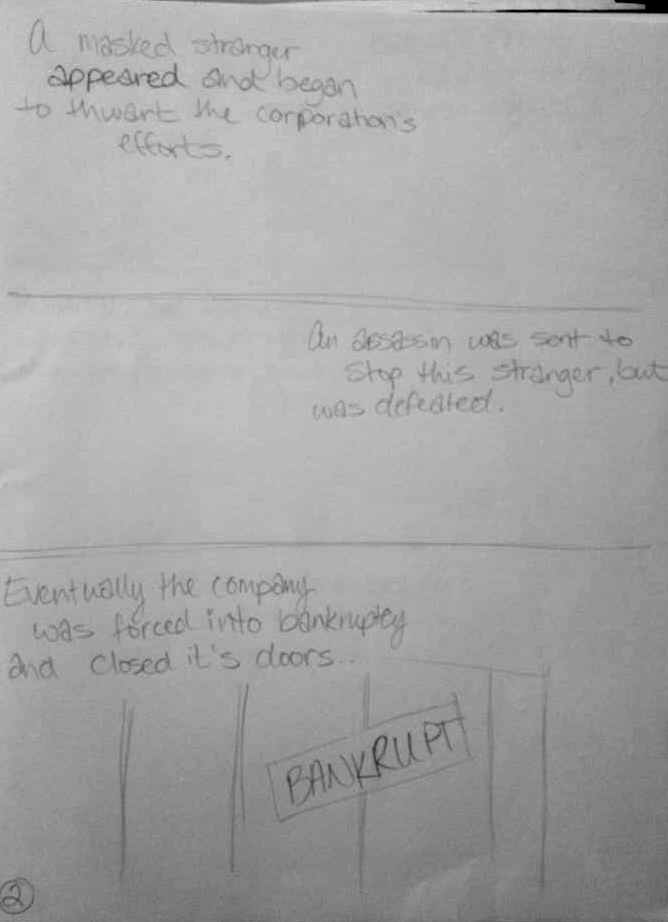 A masked stranger
appeared and began
to thwart the corporation's
efforts.
An assassin was sent to
stop this stranger, but
was defeated.
Eventually the company
was forced into bankruptcy
and closed it's doors...
BANKRUPT
2